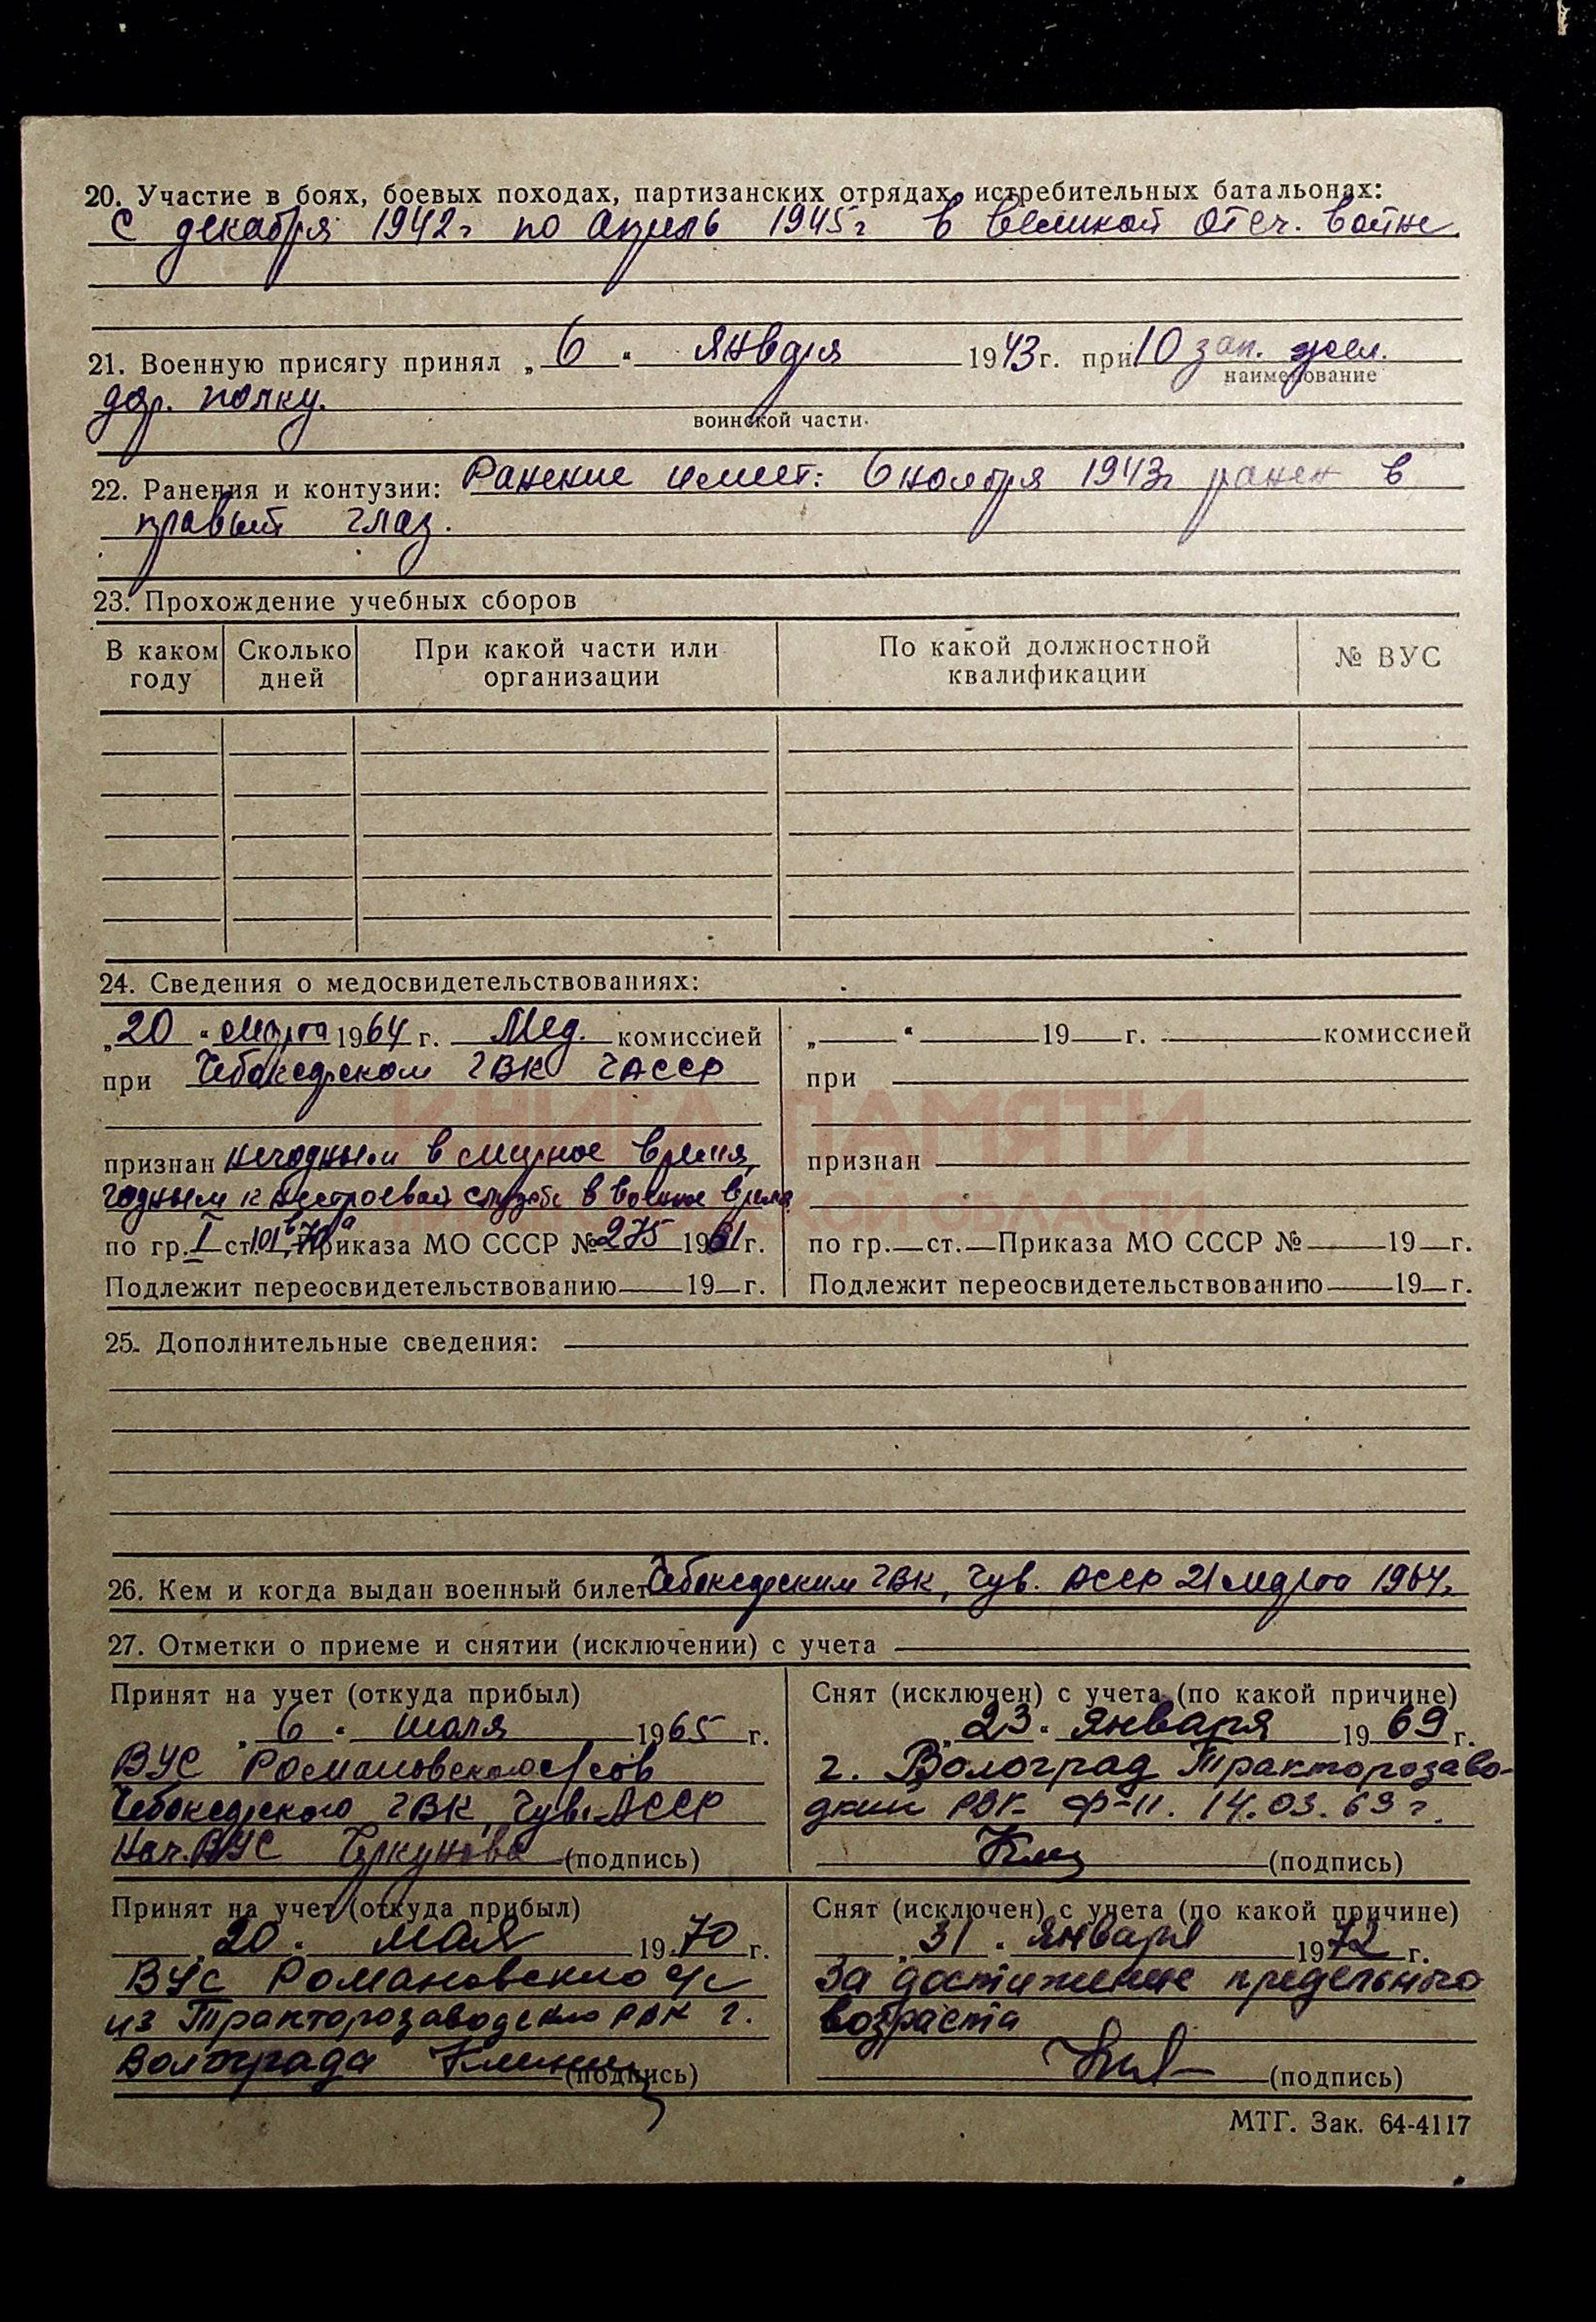 20. Участие в боях, боевых походах, партизанских отрядах, истребительных батальонах:
С декабря 1942г по апрель 1945г в Великой Отеч. войне
21. Военную присягу принял „6" января 1943г. при 10 зап. жел.
наименование
дор. полку.
воинской части
22. Ранения и контузии: Ранение имеет: 6 ноября 1943г ранен в
правый глаз.
23. Прохождение учебных сборов
В каком году Сколько дней При какой части или организации По какой должностной квалификации № ВУС
24. Сведения о медосвидетельствованиях:
„20" марта 1964 г. Мед. комиссией
при Чебоксарском ГВК ЧАССР
признан негодным в мирное время,
годным к нестроевой службе в военное время
по гр. I ст. 101 Приказа МО СССР № 275 1961 г.
Подлежит переосвидетельствованию 19 г.
„ " 19 г. комиссией
при
признан
по гр. ст. Приказа МО СССР № 19 г.
Подлежит переосвидетельствованию 19 г.
КНИГА ПАМЯТИ
25. Дополнительные сведения:
26. Кем и когда выдан военный билет Чебоксарским ГВК, Чув. АССР 21 марта 1964г.
27. Отметки о приеме и снятии (исключении) с учета
Принят на учет (откуда прибыл)
„6" июля 1965 г.
ВУС Романовского с/сов
Чебоксарского ГВК, Чув. АССР
Нач. ВУС (подпись)
Снят (исключен) с учета (по какой причине)
„23" января 1969 г.
г. Волгоград Тракторозаво-
дский РВК ф-11. 14.03.69 г.
(подпись)
Принят на учет (откуда прибыл)
„20" мая 1970 г.
ВУС Романовского с/с
из Тракторозаводского РВК г.
Волгограда (подпись)
Снят (исключен) с учета (по какой причине)
„31" января 1972 г.
За достижение предельного
возраста
(подпись)
МТГ. Зак. 64-4117